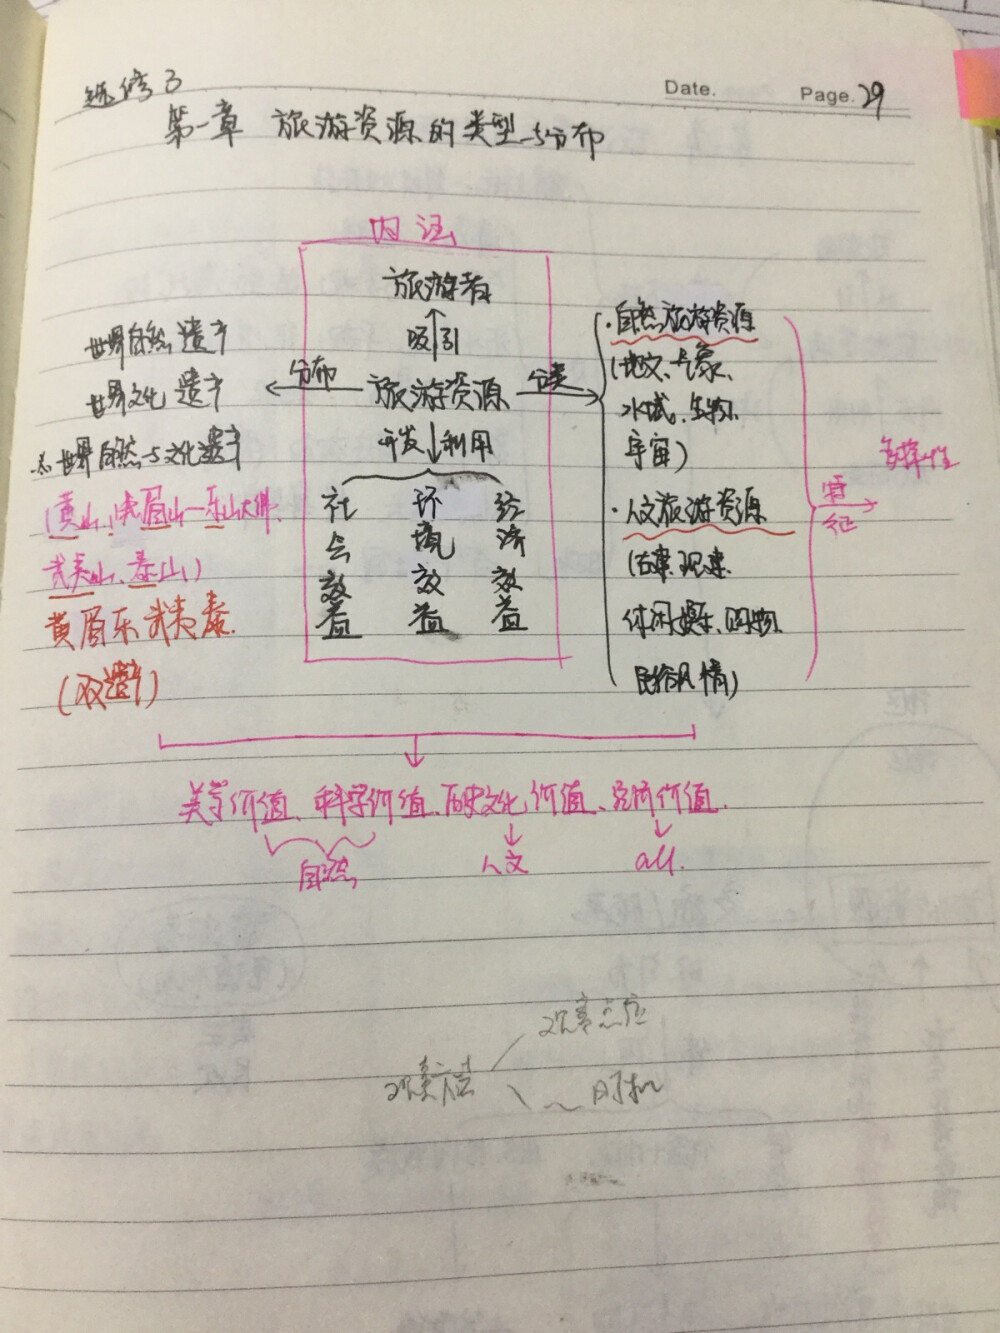 选修3
Date.
Page. 29
第一章 旅游资源的类型与分布
内涵
旅游者
吸引
旅游资源
开发 利用
社会效益
环境效益
经济效益
分布
世界自然遗产
世界文化遗产
世界自然与文化遗产
(黄山、峨眉山—乐山大佛、
武夷山、泰山)
黄眉乐武夷泰
(双遗产)
分类
·自然旅游资源
(地文、气象、
水域、生物、
宇宙)
·人文旅游资源
(古建、现建、
休闲娱乐、购物、
民俗风情)
特征
多样性
美学价值、科学价值、历史文化价值、经济价值
自然
人文
all.
观赏方法
观赏点位
~ 时机